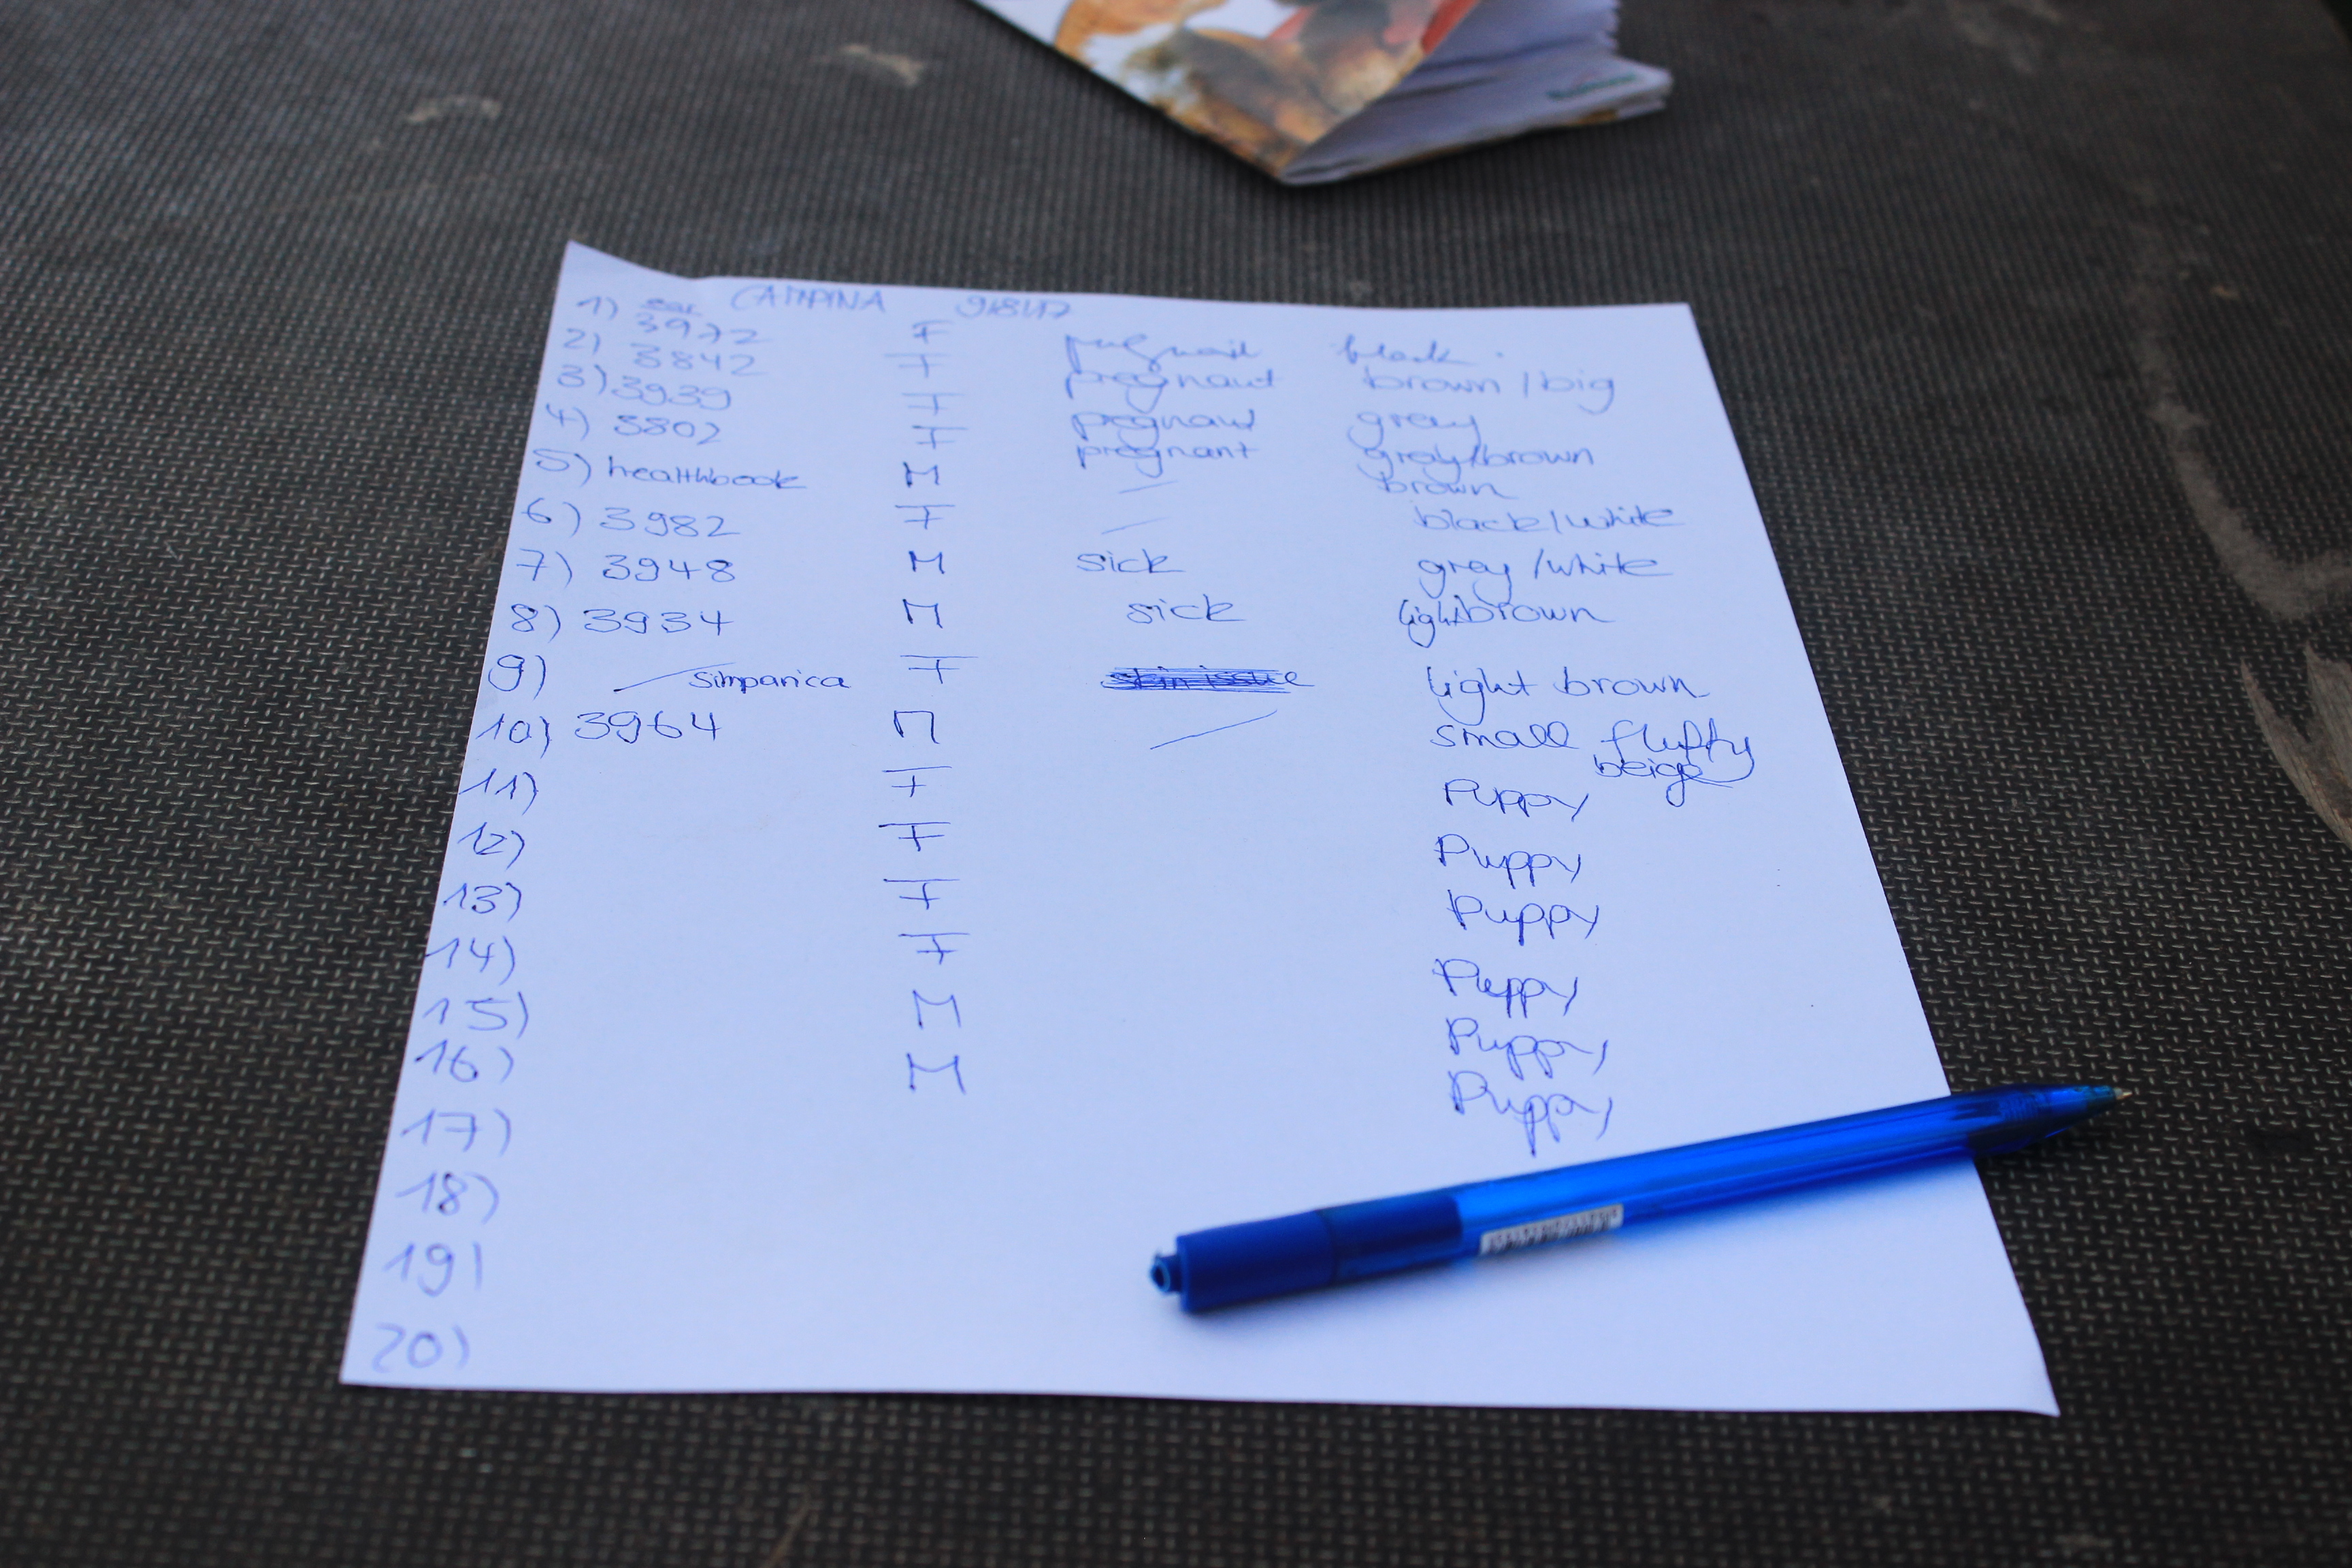 ear CAMPINA
1) 3972 F pregnant black
2) 3842 F pregnant brown / big
3) 3939 F pregnant grey
4) 3802 F pregnant grey/brown
5) healthbook M / brown
6) 3982 F / black/white
7) 3948 M sick grey /white
8) 3934 M sick lightbrown
9) / Simparica F skin issue light brown
10) 3964 M / small fluffy
beige
11) F Puppy
12) F Puppy
13) F Puppy
14) F Puppy
15) M Puppy
16) M Puppy
17)
18)
19)
20)